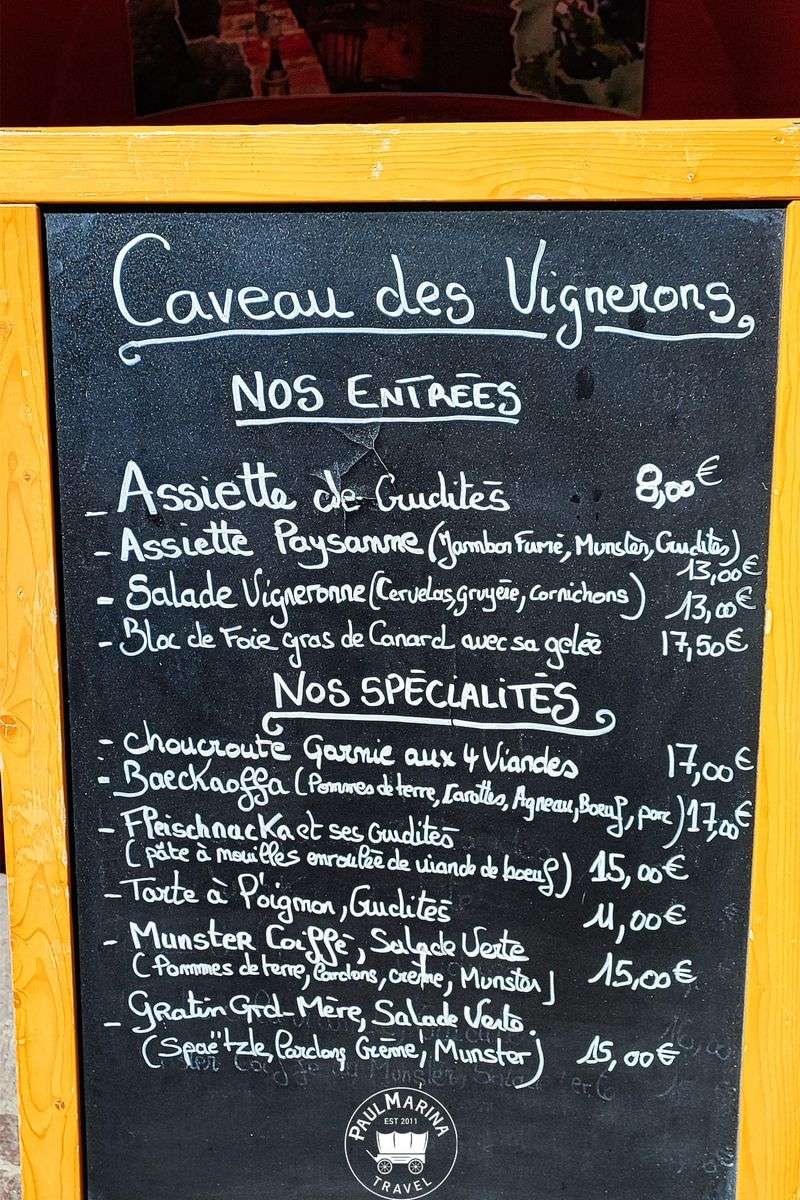 Caveau des Vignerons
NOS ENTRÉES
- Assiette de Crudités 8,00€
- Assiette Paysanne (Jambon Fumé, Munster, Crudités)
13,00€
- Salade Vigneronne (Cervelas, gruyère, cornichons) 13,00€
- Bloc de Foie gras de Canard avec sa gelée 17,50€
NOS SPÉCIALITÉS
- choucroute Garnie aux 4 Viandes 17,00€
- Baeckaoffa (Pommes de terre, Carottes, Agneau, Boeuf, porc) 17,00€
- Fleischnacka et ses Crudités
(pâte à nouilles enroulée de viande de boeuf) 15,00€
- Tarte à l'oignon, Crudités 11,00€
- Munster Coiffé, Salade Verte
(Pommes de terre, Lardons, crème, Munster) 15,00€
- Gratin Grd-Mère, Salade Verte.
(Spaëtzle, Lardons, Crème, Munster) 15,00€
PAULMARINA
EST 2011
TRAVEL